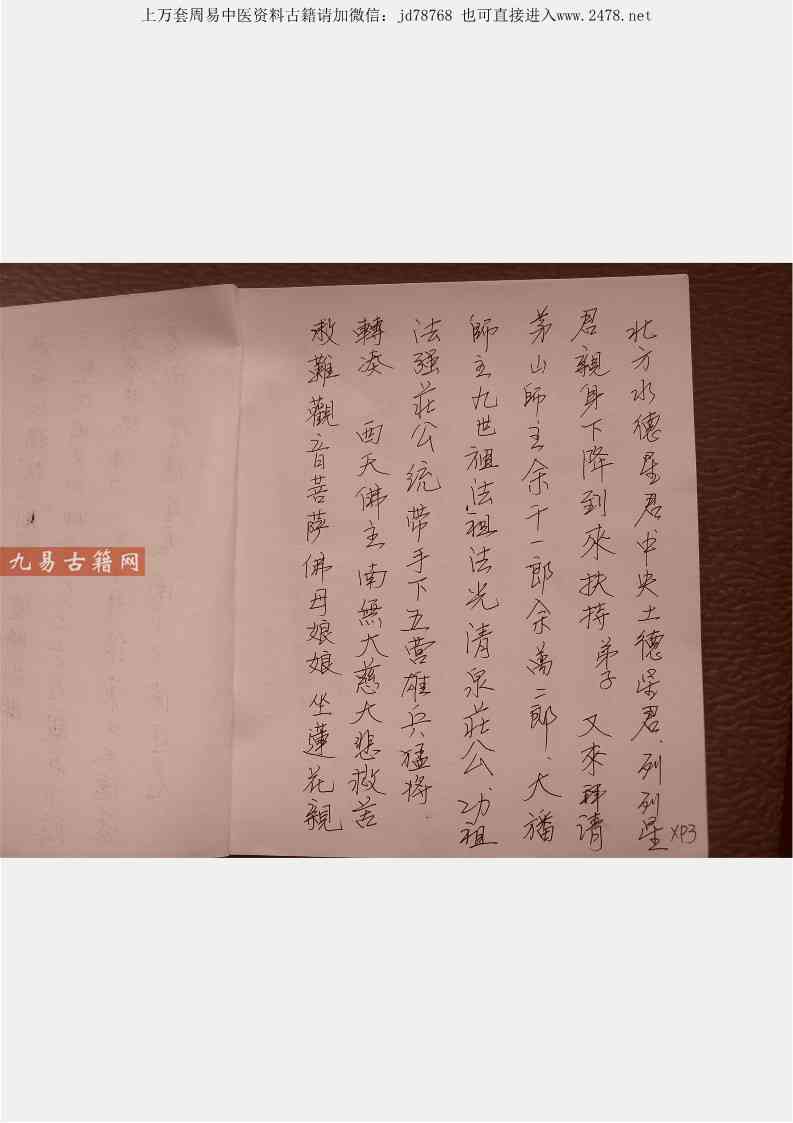 上万套周易中医资料古籍请加微信：jd78768 也可直接进入www.2478.net
北方水德星君中央土德星君、列列星
君親身下降到來扶持 弟子 又來拜请
茅山師主余千一郎余萬二郎、大播
師主九世祖法祖法光清泉莊公、功祖
法强莊公統带手下五营雄兵猛将、
轉凑 西天佛主南無大慈大悲救苦
救難觀音菩萨佛母娘娘坐蓮花親
XP3
九易古籍网